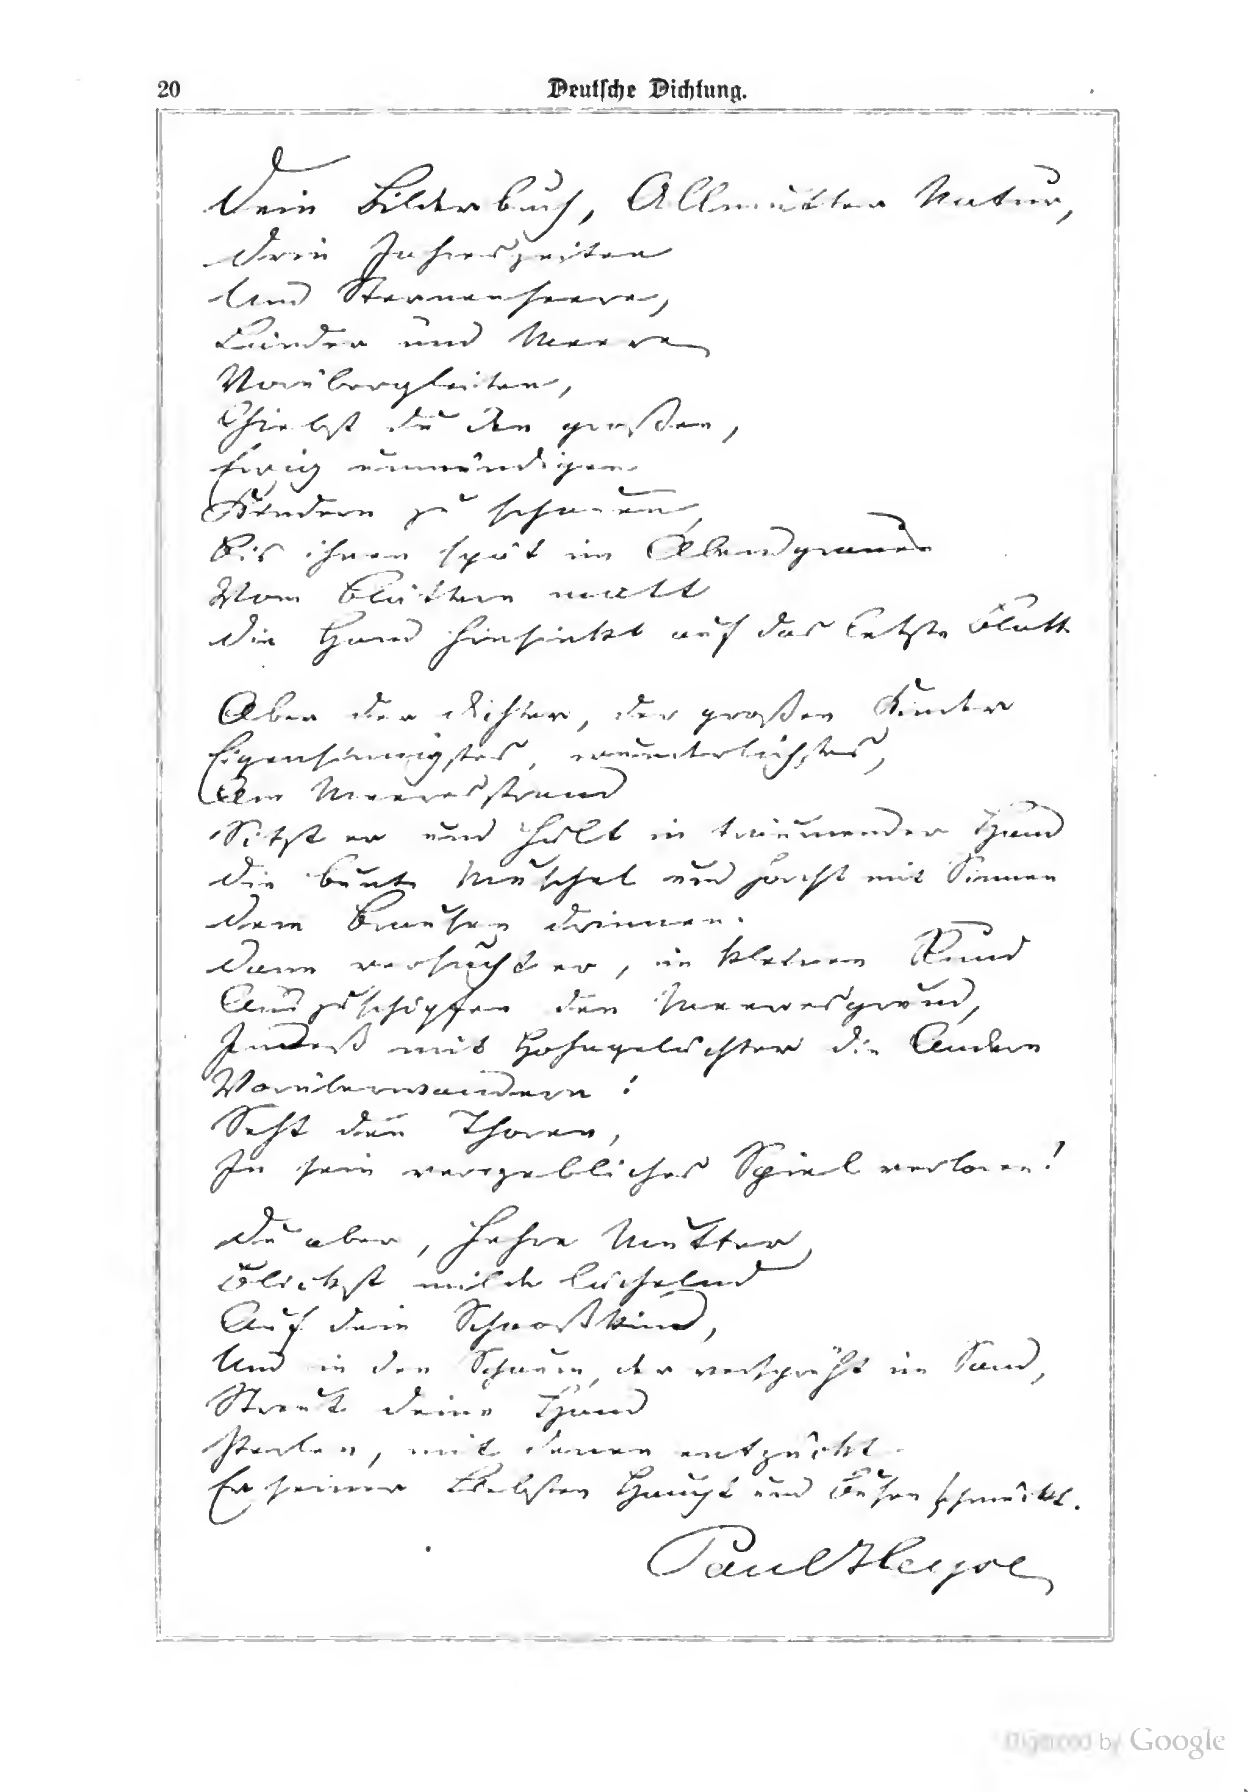 20
Deutsche Dichtung.
Dein Bilderbuch, Allmutter Natur,
Drin Jahreszeiten
Und Sternenheere,
Länder und Meere
Vorübergleiten,
Giebst du den großen,
Ewig unmündigen
Kindern zu schauen,
Bis ihnen spät im Abendgrauen
Vom Blättern matt
Die Hand hinsinkt auf das letzte Blatt.
Aber der Dichter, der großen Kinder
Eigensinnigstes, wunderlichstes,
Am Meeresstrand
Sitzt er und hält in träumender Hand
Die bunte Muschel und horcht mit Sinnen
Dem Brausen drinnen.
Dann versucht er, im kleinen Rund
Auszuschöpfen den Meeresgrund,
Indeß mit Hohngelächter die Andern
Vorüberwandern:
Seht den Thoren,
In sein vergebliches Spiel verloren!
Du aber, hehre Mutter,
Blickst milde lächelnd
Auf dein Schooßkind,
Und in den Schaum, der versprüht im Sand,
Streut deine Hand
Perlen, mit denen entzückt
Er seiner Liebsten Haupt und Busen schmückt.
Paul Heyse
Digitized by Google